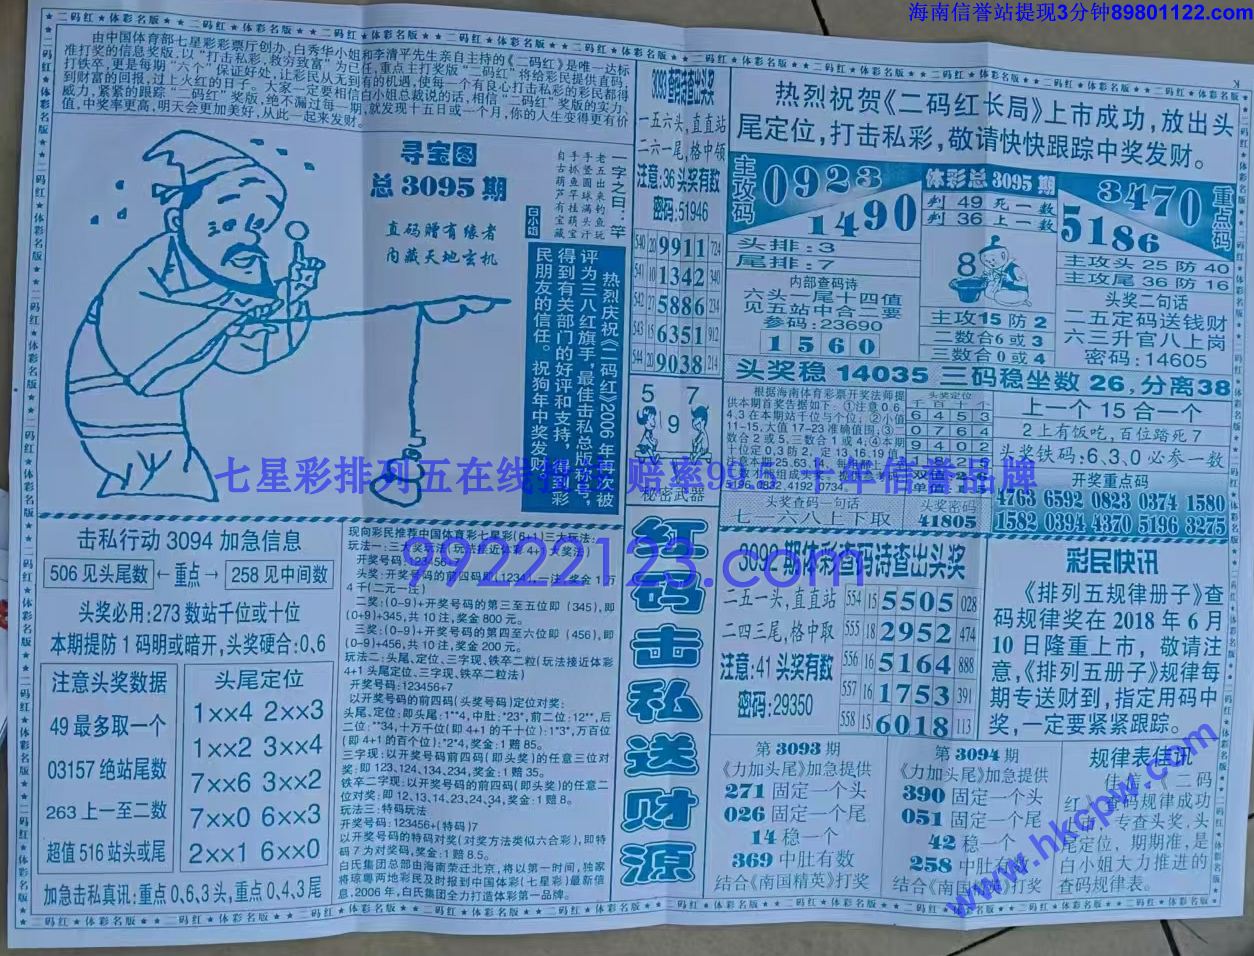 海南信誉站提现3分钟89801122.com
由中国体育部七星彩彩票厅创办,白秀华小姐和李清平先生亲自主持的《二码红》是唯一达标
准打奖的信息奖版,以“打击私彩,救穷致富”为己任,重点主打奖版“二码红”将给彩民提供直码,
打铁卒,更是每期“六个”保证好处,让彩民从无到有的机遇,使每一个有良心打击私彩的彩民都得
到财富的回报,过上火红的日子。大家一定要相信白小姐总裁说的话,相信“二码红”奖版的实力,
威力,紧紧的跟踪“二码红”奖版,绝不漏过每一期,就发现十五日或一个月,你的人生变得更有价
值,中奖率更高,明天会更加美好,从此一起来发财。
寻宝图
总3095期
直码赠有缘者
内藏天地玄机
一字之曰:竿
白小姐
热烈庆祝《二码红》2006年再次被
评为三八红旗手,最佳击私总版称号,
得到有关部门的好评和支持,到彩
民朋友的信任。祝狗年中奖发财
3093查码诗查出头奖
一五六头,直直站
二六一尾,格中领
注意:36头奖有数
密码:51946
540 20 9911 724
541 10 1342 340
542 27 5886 234
543 15 6351 912
544 20 9038 214
5 7
9
秘密武器
热烈祝贺《二码红长局》上市成功,放出头
尾定位,打击私彩,敬请快快跟踪中奖发财。
主攻码 0923
1490
头排:3
尾排:7
内部查码诗
六头一尾十四值
见五站中合二要
参码:23690
1560
体彩总3095期
判49死一数
判36上一数
8
主攻15防2
二数合6或3
三数合0或4
3470 重点码
5186
主攻头25防40
主攻尾36防16
头奖二句话
二五定码送钱财
六三升官八上岗
密码:14605
头奖稳14035三码稳坐数26,分离38
根据海南体育彩票开奖法师提
供本期首奖告据如下:①注意0.6
4.3在本期站千位与个位;②小值
11-15,大值17-23准确值围;③二
数合2或5,三数合1或4;④本期
十位定0.3防2,定13.16.19值
头奖定位
千百十个
6 4 5 3
0 7 6 4
9 4 0 2
上一个15合一个
2上有饭吃,百位踏死7
头奖铁码:6.3.0必参一数
头奖查码一句话
七一六八上下取
头奖密码
41805
开奖重点码
4763 6592 0823 0374 1580
1582 0394 4370 5196 3275
七星彩排列五在线投注 赔率995 十年信誉品牌
99222123.com
击私行动3094加急信息
506见头尾数 ←重点→ 258见中间数
头奖必用:273数站千位或十位
本期提防1码明或暗开,头奖硬合:0,6
注意头奖数据
49最多取一个
03157绝站尾数
263上一至二数
超值516站头或尾
头尾定位
1××4 2××3
1××2 3××4
7××6 3××2
7××0 6××3
2××1 6××0
加急击私真讯:重点0,6,3头,重点0,4,3尾
现向彩民推荐中国体育彩七星彩(6+1)三大玩法:
玩法一:三大奖玩法(玩法接近体彩4+1大奖法)
头奖:开奖号码的前四码即(1234),一注,奖金1万
4千(二元一注)
二奖:(0-9)+开奖号码的第三至五位即(345),即
(0+9)+345,共10注,奖金800元。
三奖:(0-9)+开奖号码的第四至六位即(456),即
(0-9)+456,共10注,奖金200元。
玩法二:头尾、定位、三字现、铁卒二粒(玩法接近体彩
4+1头尾定位、三字现、铁卒二粒法)
开奖号码:123456+7
以开奖号码的前四码(头奖号码)定位对奖:
头尾、定位:即头尾:1**4,中肚:*23*,前二位:12**,后
二位:**34,十万千位(即4+1的千十位):1*3*,万百位
(即4+1的百个位):*2*4,奖金:1赔85。
三字现:以开奖号码前四码(即头奖)的任意三位对
奖:即123,124,134,234,奖金:1赔35。
铁卒二字现:以开奖号码的前四码(即头奖)的任意二
位对奖:即12,13,14,23,24,34,奖金:1赔8。
玩法三:特码玩法
开奖号码:123456+(特码)7
以开奖号码的特码对奖(对奖方法类似六合彩),即特
码7为对奖码,奖金:1赔8.5。
白氏集团总部由海南荣迁北京,将以第一时间,独家
将琼粤两地彩民及时报到中国体彩(七星彩)最新信
息,2006年,白氏集团全力打造体彩第一品牌。
红码击私送财源
3092期体彩查码诗查出头奖
二五一头,直直站
二四三尾,格中取
注意:41头奖有数
密码:29350
554 15 5505 028
555 18 2952 474
556 16 5164 888
557 16 1753 391
558 15 6018 113
第3093期
《力加头尾》加急提供
271固定一个头
026固定一个尾
14稳一个
369中肚有数
结合《南国精英》打奖
第3094期
《力加头尾》加急提供
390固定一个头
051固定一个尾
42稳一个
258中肚有数
结合《南国精英》打奖
彩民快讯
《排列五规律册子》查
码规律奖在2018年6月
10日隆重上市,敬请注
意,《排列五册子》规律每
期专送财到,指定用码中
奖,一定要紧紧跟踪。
规律表佳讯
白小姐大力推进的
查码规律表。
www.hkcpw.com